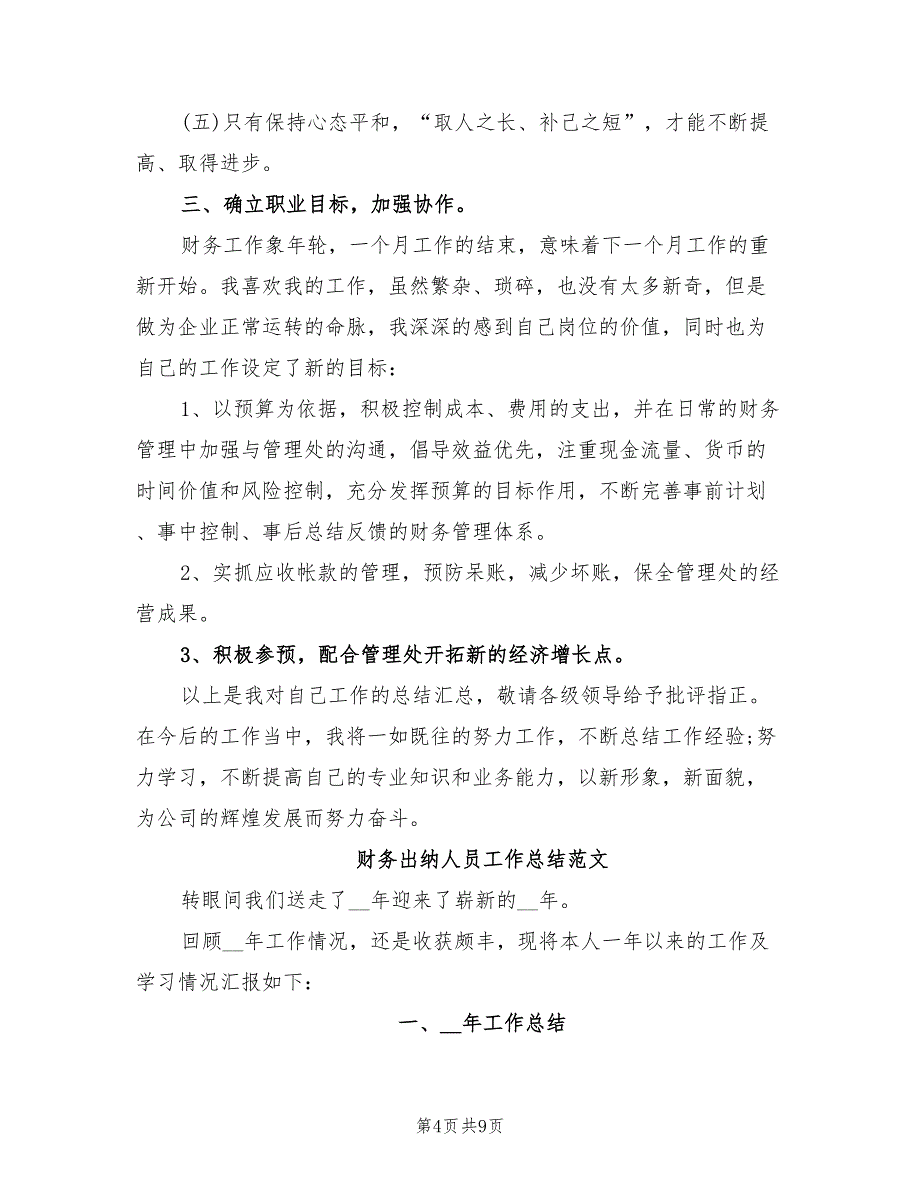 (五)只有保持心态平和，“取人之长、补己之短”，才能不断提
高、取得进步。
三、确立职业目标，加强协作。
财务工作象年轮，一个月工作的结束，意味着下一个月工作的重
新开始。我喜欢我的工作，虽然繁杂、琐碎，也没有太多新奇，但是
做为企业正常运转的命脉，我深深的感到自己岗位的价值，同时也为
自己的工作设定了新的目标：
1、以预算为依据，积极控制成本、费用的支出，并在日常的财务
管理中加强与管理处的沟通，倡导效益优先，注重现金流量、货币的
时间价值和风险控制，充分发挥预算的目标作用，不断完善事前计划
、事中控制、事后总结反馈的财务管理体系。
2、实抓应收帐款的管理，预防呆账，减少坏账，保全管理处的经
营成果。
3、积极参预，配合管理处开拓新的经济增长点。
以上是我对自己工作的总结汇总，敬请各级领导给予批评指正。
在今后的工作当中，我将一如既往的努力工作，不断总结工作经验;努
力学习，不断提高自己的专业知识和业务能力，以新形象，新面貌，
为公司的辉煌发展而努力奋斗。
财务出纳人员工作总结范文
转眼间我们送走了__年迎来了崭新的__年。
回顾__年工作情况，还是收获颇丰，现将本人一年以来的工作及
学习情况汇报如下：
一、__年工作总结
第4页共9页